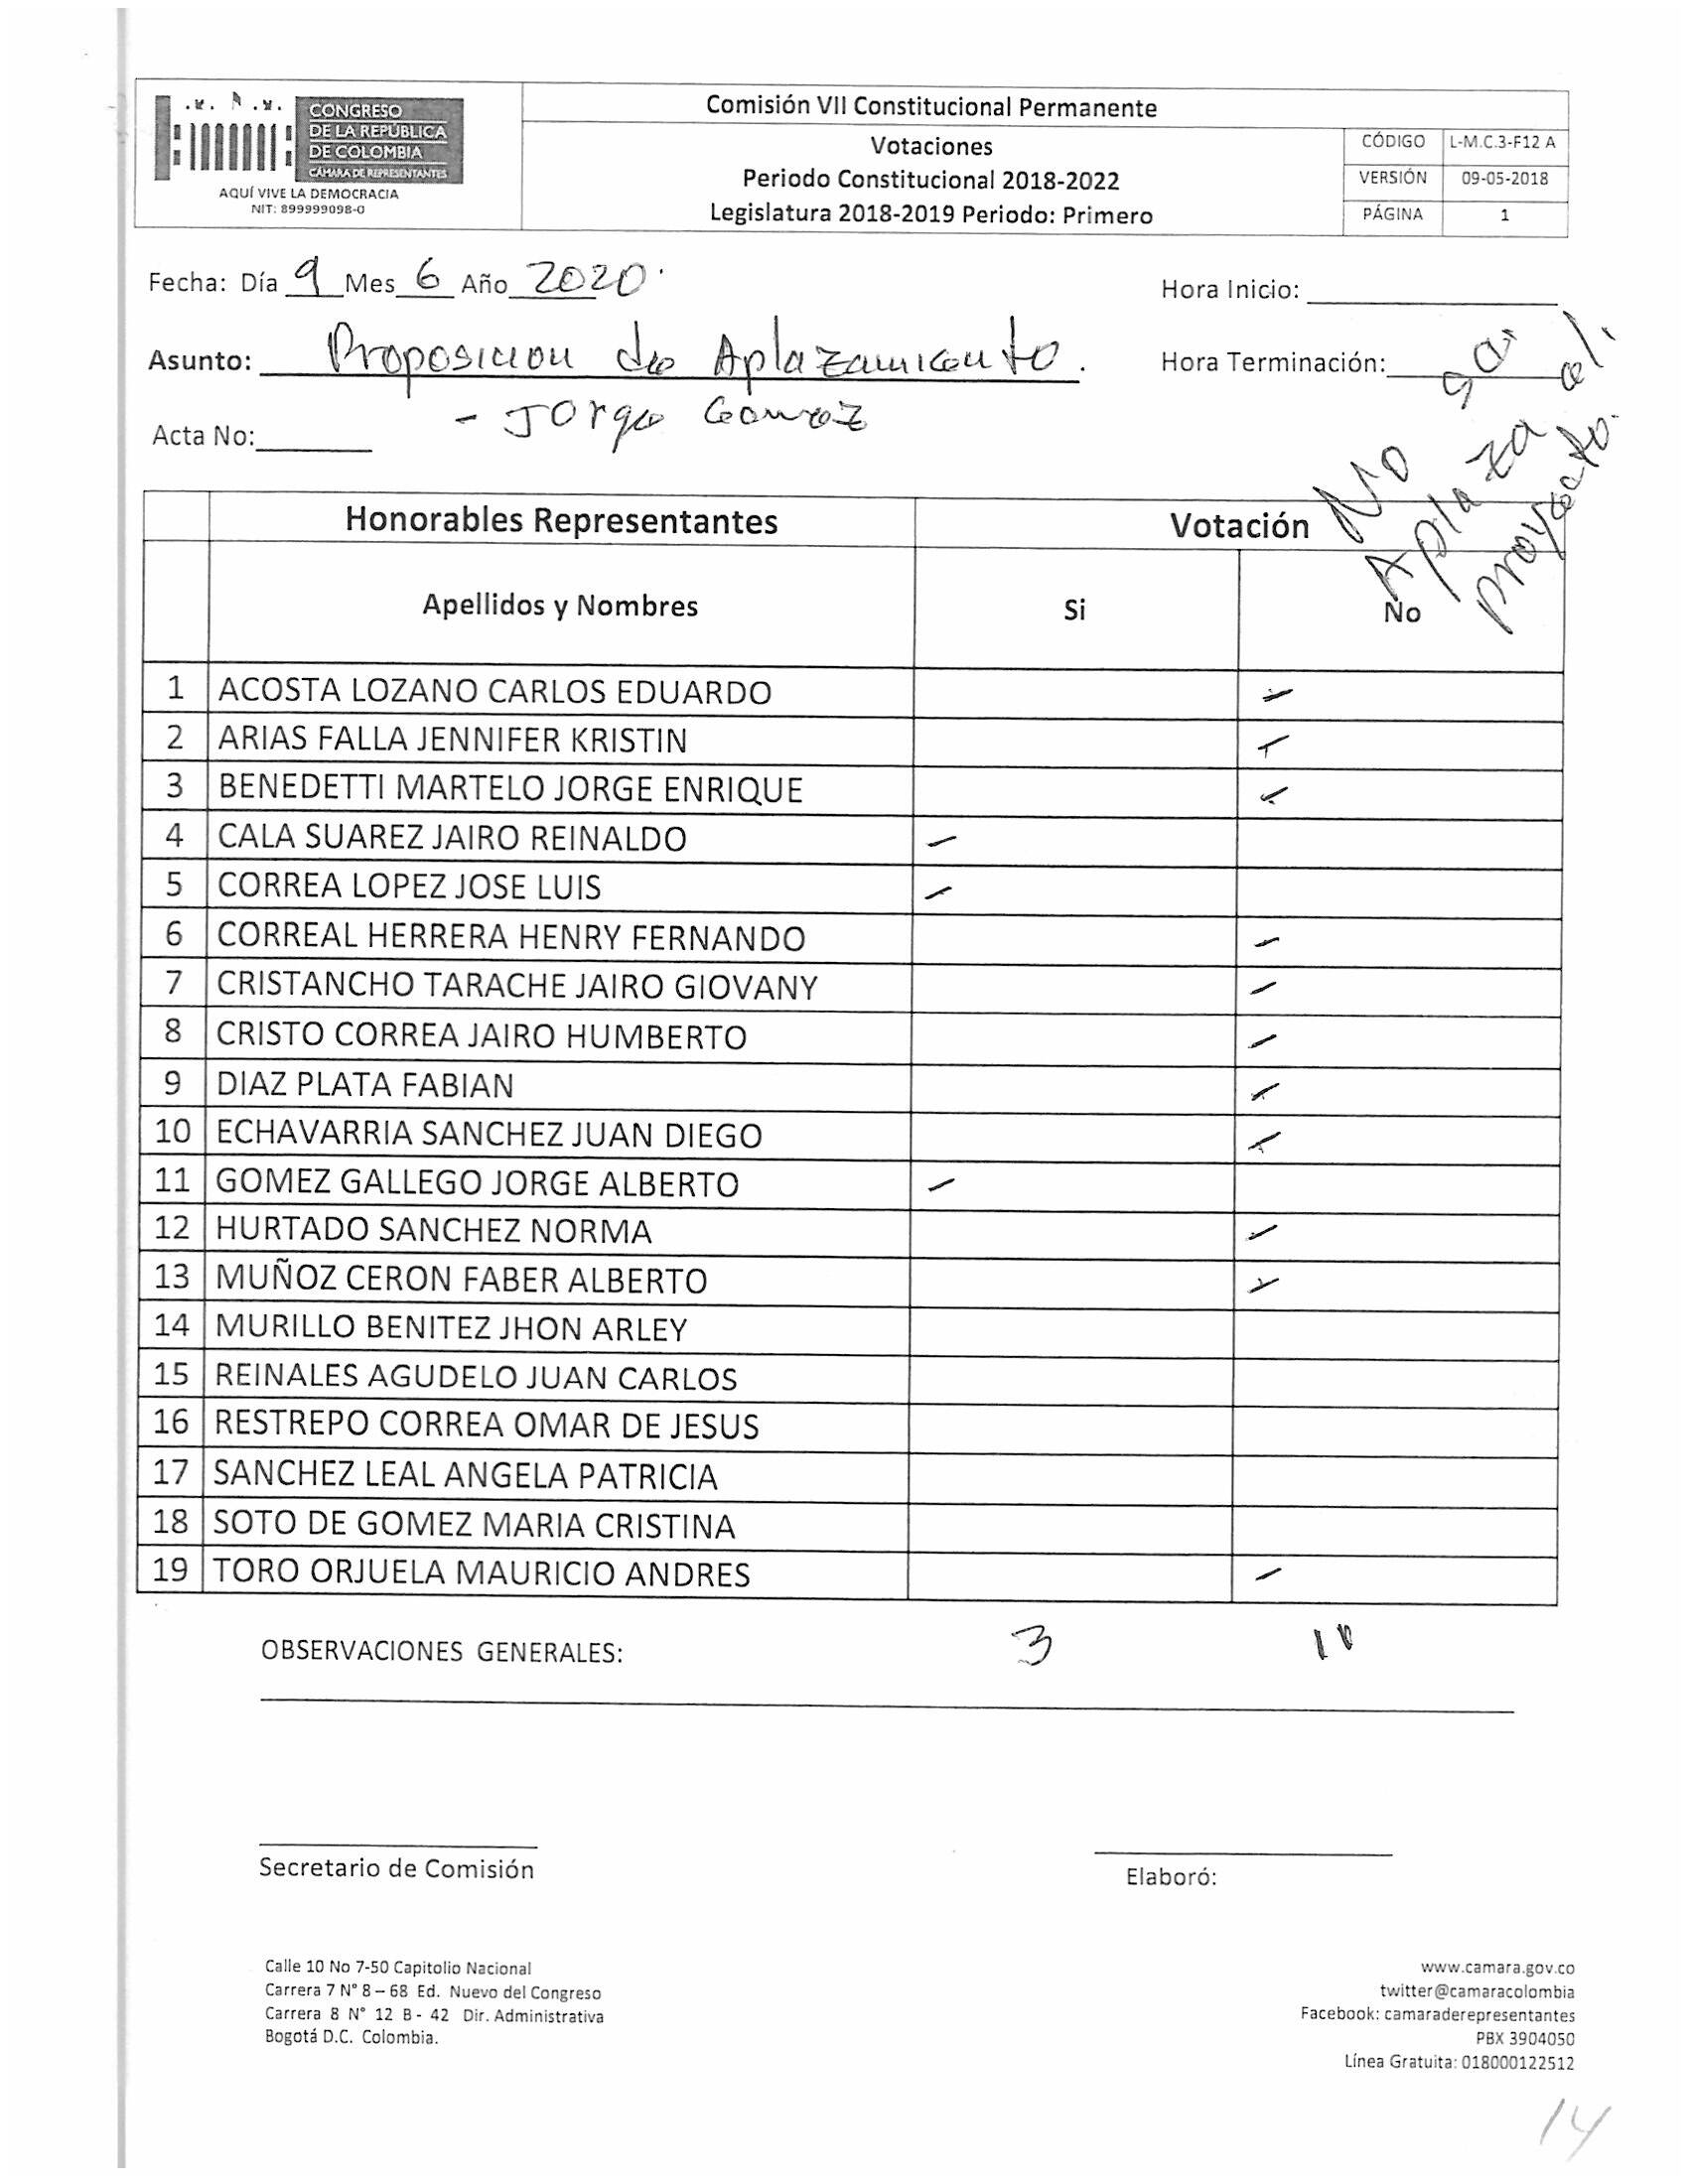 CONGRESO
DE LA REPÚBLICA
DE COLOMBIA
CÁMARA DE REPRESENTANTES
AQUÍ VIVE LA DEMOCRACIA
NIT: 899999098-0
Comisión VII Constitucional Permanente
Votaciones
Periodo Constitucional 2018-2022
Legislatura 2018-2019 Periodo: Primero
CÓDIGO L-M.C.3-F12 A
VERSIÓN 09-05-2018
PÁGINA 1
Fecha: Día 9 Mes 6 Año 2020.
Hora Inicio:
Asunto: Proposicion de Aplazamiento.
Hora Terminación:
- Jorge Gomez
Acta No:
No
Aplaza
el
proyecto.
Honorables Representantes Votación
Apellidos y Nombres Si No
1 ACOSTA LOZANO CARLOS EDUARDO
2 ARIAS FALLA JENNIFER KRISTIN
3 BENEDETTI MARTELO JORGE ENRIQUE
4 CALA SUAREZ JAIRO REINALDO
5 CORREA LOPEZ JOSE LUIS
6 CORREAL HERRERA HENRY FERNANDO
7 CRISTANCHO TARACHE JAIRO GIOVANY
8 CRISTO CORREA JAIRO HUMBERTO
9 DIAZ PLATA FABIAN
10 ECHAVARRIA SANCHEZ JUAN DIEGO
11 GOMEZ GALLEGO JORGE ALBERTO
12 HURTADO SANCHEZ NORMA
13 MUÑOZ CERON FABER ALBERTO
14 MURILLO BENITEZ JHON ARLEY
15 REINALES AGUDELO JUAN CARLOS
16 RESTREPO CORREA OMAR DE JESUS
17 SANCHEZ LEAL ANGELA PATRICIA
18 SOTO DE GOMEZ MARIA CRISTINA
19 TORO ORJUELA MAURICIO ANDRES
OBSERVACIONES GENERALES: 3 10
Secretario de Comisión
Elaboró:
Calle 10 No 7-50 Capitolio Nacional
Carrera 7 N° 8 – 68 Ed. Nuevo del Congreso
Carrera 8 N° 12 B - 42 Dir. Administrativa
Bogotá D.C. Colombia.
www.camara.gov.co
twitter@camaracolombia
Facebook: camaraderepresentantes
PBX 3904050
Línea Gratuita: 018000122512
14